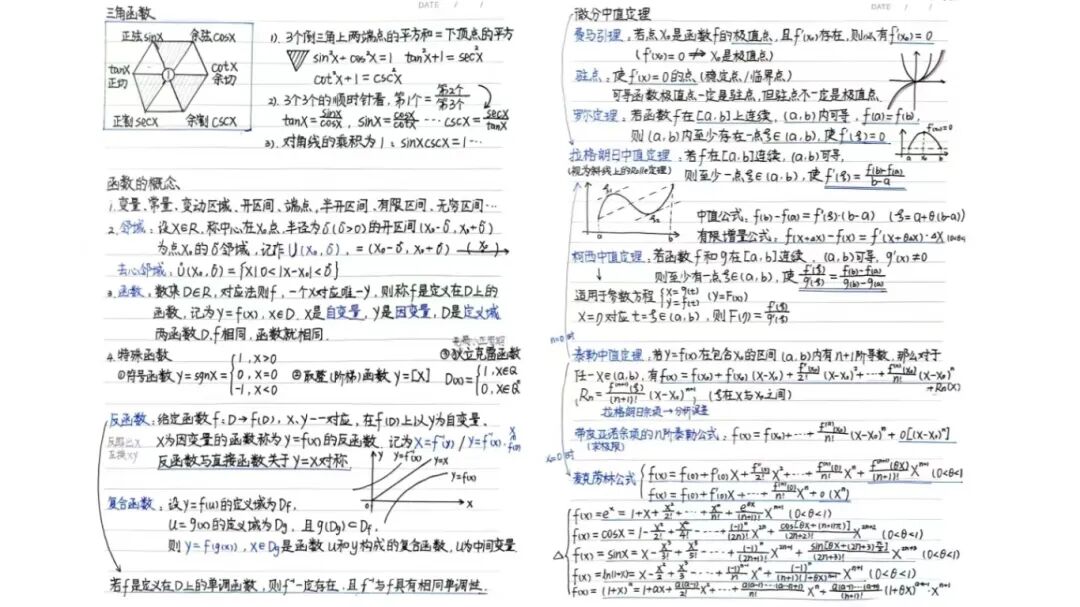 DATE / /
三角函数
正弦sinx 余弦cosx
tanx 正切
1
cotx 余切
正割secx 余割cscx
1). 3个倒三角上两端点的平方和=下顶点的平方
sin²x+cos²x=1 tan²x+1=sec²x
cot²x+1=csc²x
2). 3个3个的顺时针看,第1个=第2个/第3个
tanx=sinx/cosx, sinx=cosx/cotx … cscx=secx/tanx
3). 对角线的乘积为1: sinxcscx=1…
函数的概念、
1. 变量、常量、变动区域、开区间、端点、半开区间、有限区间、无穷区间…
2. 邻域:设X∈R,称中心在X₀点,半径为δ(δ>0)的开区间(X₀-δ, X₀+δ)
为点X₀的δ邻域,记作U(X₀,δ),=(X₀-δ, X₀+δ) (X₀)
去心邻域:Ů(X₀,δ)={X|0<|X-X₀|<δ}
3. 函数:数集D∈R,对应法则f,一个X对应唯一y,则称f是定义在D上的
函数,记为y=f(x), x∈D. X是自变量,y是因变量,D是定义域
两函数D.f相同,函数就相同.
4. 特殊函数
①符号函数 y=sgnx={1, x>0
0, x=0
-1, x<0
②取整(阶梯)函数 y=[X]
③狄立克雷函数
D(x)={1, x∈Q
0, x∈Qᶜ
反函数:给定函数f: D→f(D), x, y一一对应,在f(D)上以y为自变量、
反解出x 互换xy
X为因变量的函数称为y=f(x)的反函数. 记为X=f⁻¹(y) / y=f⁻¹(x).
反函数与直接函数关于y=X对称
y y=f⁻¹(x) y=x y=f(x)
0 x
复合函数:设y=f(u)的定义域为Df,
u=g(x)的定义域为Dg,且g(Dg)⊂Df,
则y=f(g(x)), x∈Dg是函数u和y构成的复合函数,u为中间变量
若f是定义在D上的单调函数,则f⁻¹一定存在,且f⁻¹与f具有相同单调性.
DATE / /
微分中值定理
费马引理:若点X₀是函数f的极值点,且f'(x₀)存在,则必有f'(x₀)=0
(f'(x₀)=0 ⇏ X₀是极值点)
驻点:使f'(x)=0的点(稳定点/临界点)
可导函数极值点一定是驻点,但驻点不一定是极值点
罗尔定理:若函数f在[a,b]上连续,(a,b)内可导,f(a)=f(b),
则(a,b)内至少存在一点ξ∈(a,b),使f'(ξ)=0
f'(x₀)=0
a x₀ b
拉格朗日中值定理:若f在[a,b]连续,(a,b)可导,
(视为斜线上的Rolle定理)
则至少一点ξ∈(a,b),使f'(ξ)=f(b)-f(a)/b-a
ξ₁ ξ₂
a b
中值公式:f(b)-f(a)=f'(ξ)·(b-a) (ξ=a+θ(b-a))
有限增量公式:f(x+Δx)-f(x)=f'(x+θΔx)·ΔX (0<θ<1)
柯西中值定理:若函数f和g在[a,b]连续,(a,b)可导,g'(x)≠0
则至少有一点ξ∈(a,b),使f'(ξ)/g'(ξ)=f(b)-f(a)/g(b)-g(a)
适用于参数方程{x=g(t)
y=f(t) (y=F(x))
X=η对应t=ξ∈(a,b),则F'(η)=f'(ξ)/g'(ξ)
n=0时
泰勒中值定理:若y=f(x)在包含X₀的区间(a,b)内有n+1阶导数,那么对于
任一x∈(a,b),有f(x)=f(x₀)+f'(x₀)(x-x₀)+f''(x₀)/2!(x-x₀)²+…+f⁽ⁿ⁾(x₀)/n!(x-x₀)ⁿ
+Rn(x)
Rn=f⁽ⁿ⁺¹⁾(ξ)/(n+1)!(x-x₀)ⁿ⁺¹ (ξ在x与x₀之间)
拉格朗日余项→分析误差
带皮亚诺余项的n阶泰勒公式:f(x)=f(x₀)+…+f⁽ⁿ⁾(x₀)/n!(x-x₀)ⁿ+o[(x-x₀)ⁿ]
(求极限)
x₀=0时
麦克劳林公式{f(x)=f(0)+f'(0)x+f''(0)/2!x²+…+f⁽ⁿ⁾(0)/n!xⁿ+f⁽ⁿ⁺¹⁾(θx)/(n+1)!xⁿ⁺¹ (0<θ<1)
f(x)=f(0)+f'(0)x+…+f⁽ⁿ⁾(0)/n!xⁿ+o(xⁿ)
f(x)=eˣ=1+x+x²/2!+…+xⁿ/n!+e^θx/(n+1)!xⁿ⁺¹ (0<θ<1)
f(x)=cosx=1-x²/2!+x⁴/4!…+(-1)ⁿ/(2n)!x²ⁿ+cos[θx+(n+1)π]/(2n+2)!x²ⁿ⁺² (0<θ<1)
△ f(x)=sinx=x-x³/3!+x⁵/5!…+(-1)ⁿ/(2n+1)!x²ⁿ⁺¹+sin[θx+(2n+3)π/2]/(2n+3)!x²ⁿ⁺³ (0<θ<1)
f(x)=ln(1+x)=x-x²/2+x³/3…+(-1)ⁿ⁻¹/n xⁿ+(-1)ⁿ/(n+1)(1+θx)ⁿ⁺¹xⁿ⁺¹ (0<θ<1)
f(x)=(1+x)ᵅ=1+αx+α(α-1)/2!x²+…+α(α-1)…(α-n+1)/n!xⁿ+α(α-1)…(α-n)/(n+1)!(1+θx)ᵅ⁻ⁿ⁻¹·xⁿ⁺¹